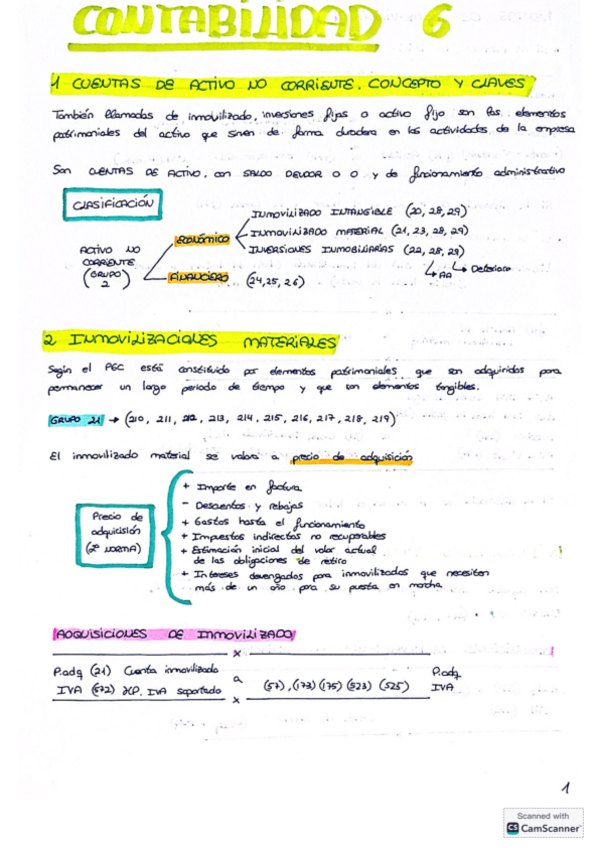 CONTABILIDAD 6
1 CUENTAS DE ACTIVO NO CORRIENTE. CONCEPTO Y CLAVES
También llamadas de inmovilizado, inversiones fijas o activo fijo son las elementos
patrimoniales del activo que sirven de forma duradera en las actividades de la empresa
Son CUENTAS DE ACTIVO, con SALDO DEUDOR O 0 y de funcionamiento administrativo
CLASIFICACIÓN
INMOVILIZADO INTANGIBLE (20, 28, 29)
ECONÓMICO
INMOVILIZADO MATERIAL (21, 23, 28, 29)
ACTIVO NO
CORRIENTE
(GRUPO
2)
INVERSIONES INMOBILIARIAS (22, 28, 29)
AA
Deterioro
FINANCIERO (24, 25, 26)
2 INMOVILIZACIONES MATERIALES
Según el PGC está constituido por elementos patrimoniales que son adquiridos para
permanecer un largo periodo de tiempo y que son elementos tangibles.
GRUPO 21 → (210, 211, 212, 213, 214, 215, 216, 217, 218, 219)
El inmovilizado material se valora a precio de adquisición
Precio de
adquicisión
(2ª NORMA)
+ Importe en factura
- Descuentos y rebajas
+ Gastos hasta el funcionamiento
+ Impuestos indirectos no recuperables
+ Estimación inicial del valor actual
de las obligaciones de retiro
+ Intereses devengados para inmovilizados que necesiten
más de un año para su puesta en marcha
ADQUISICIONES DE INMOVILIZADO
x
P.adq (21) Cuenta inmovilizado
IVA (472) HP. IVA soportado
a
(57), (173) (175) (523) (525)
P.adq
IVA
x
1
Scanned with
CS CamScanner